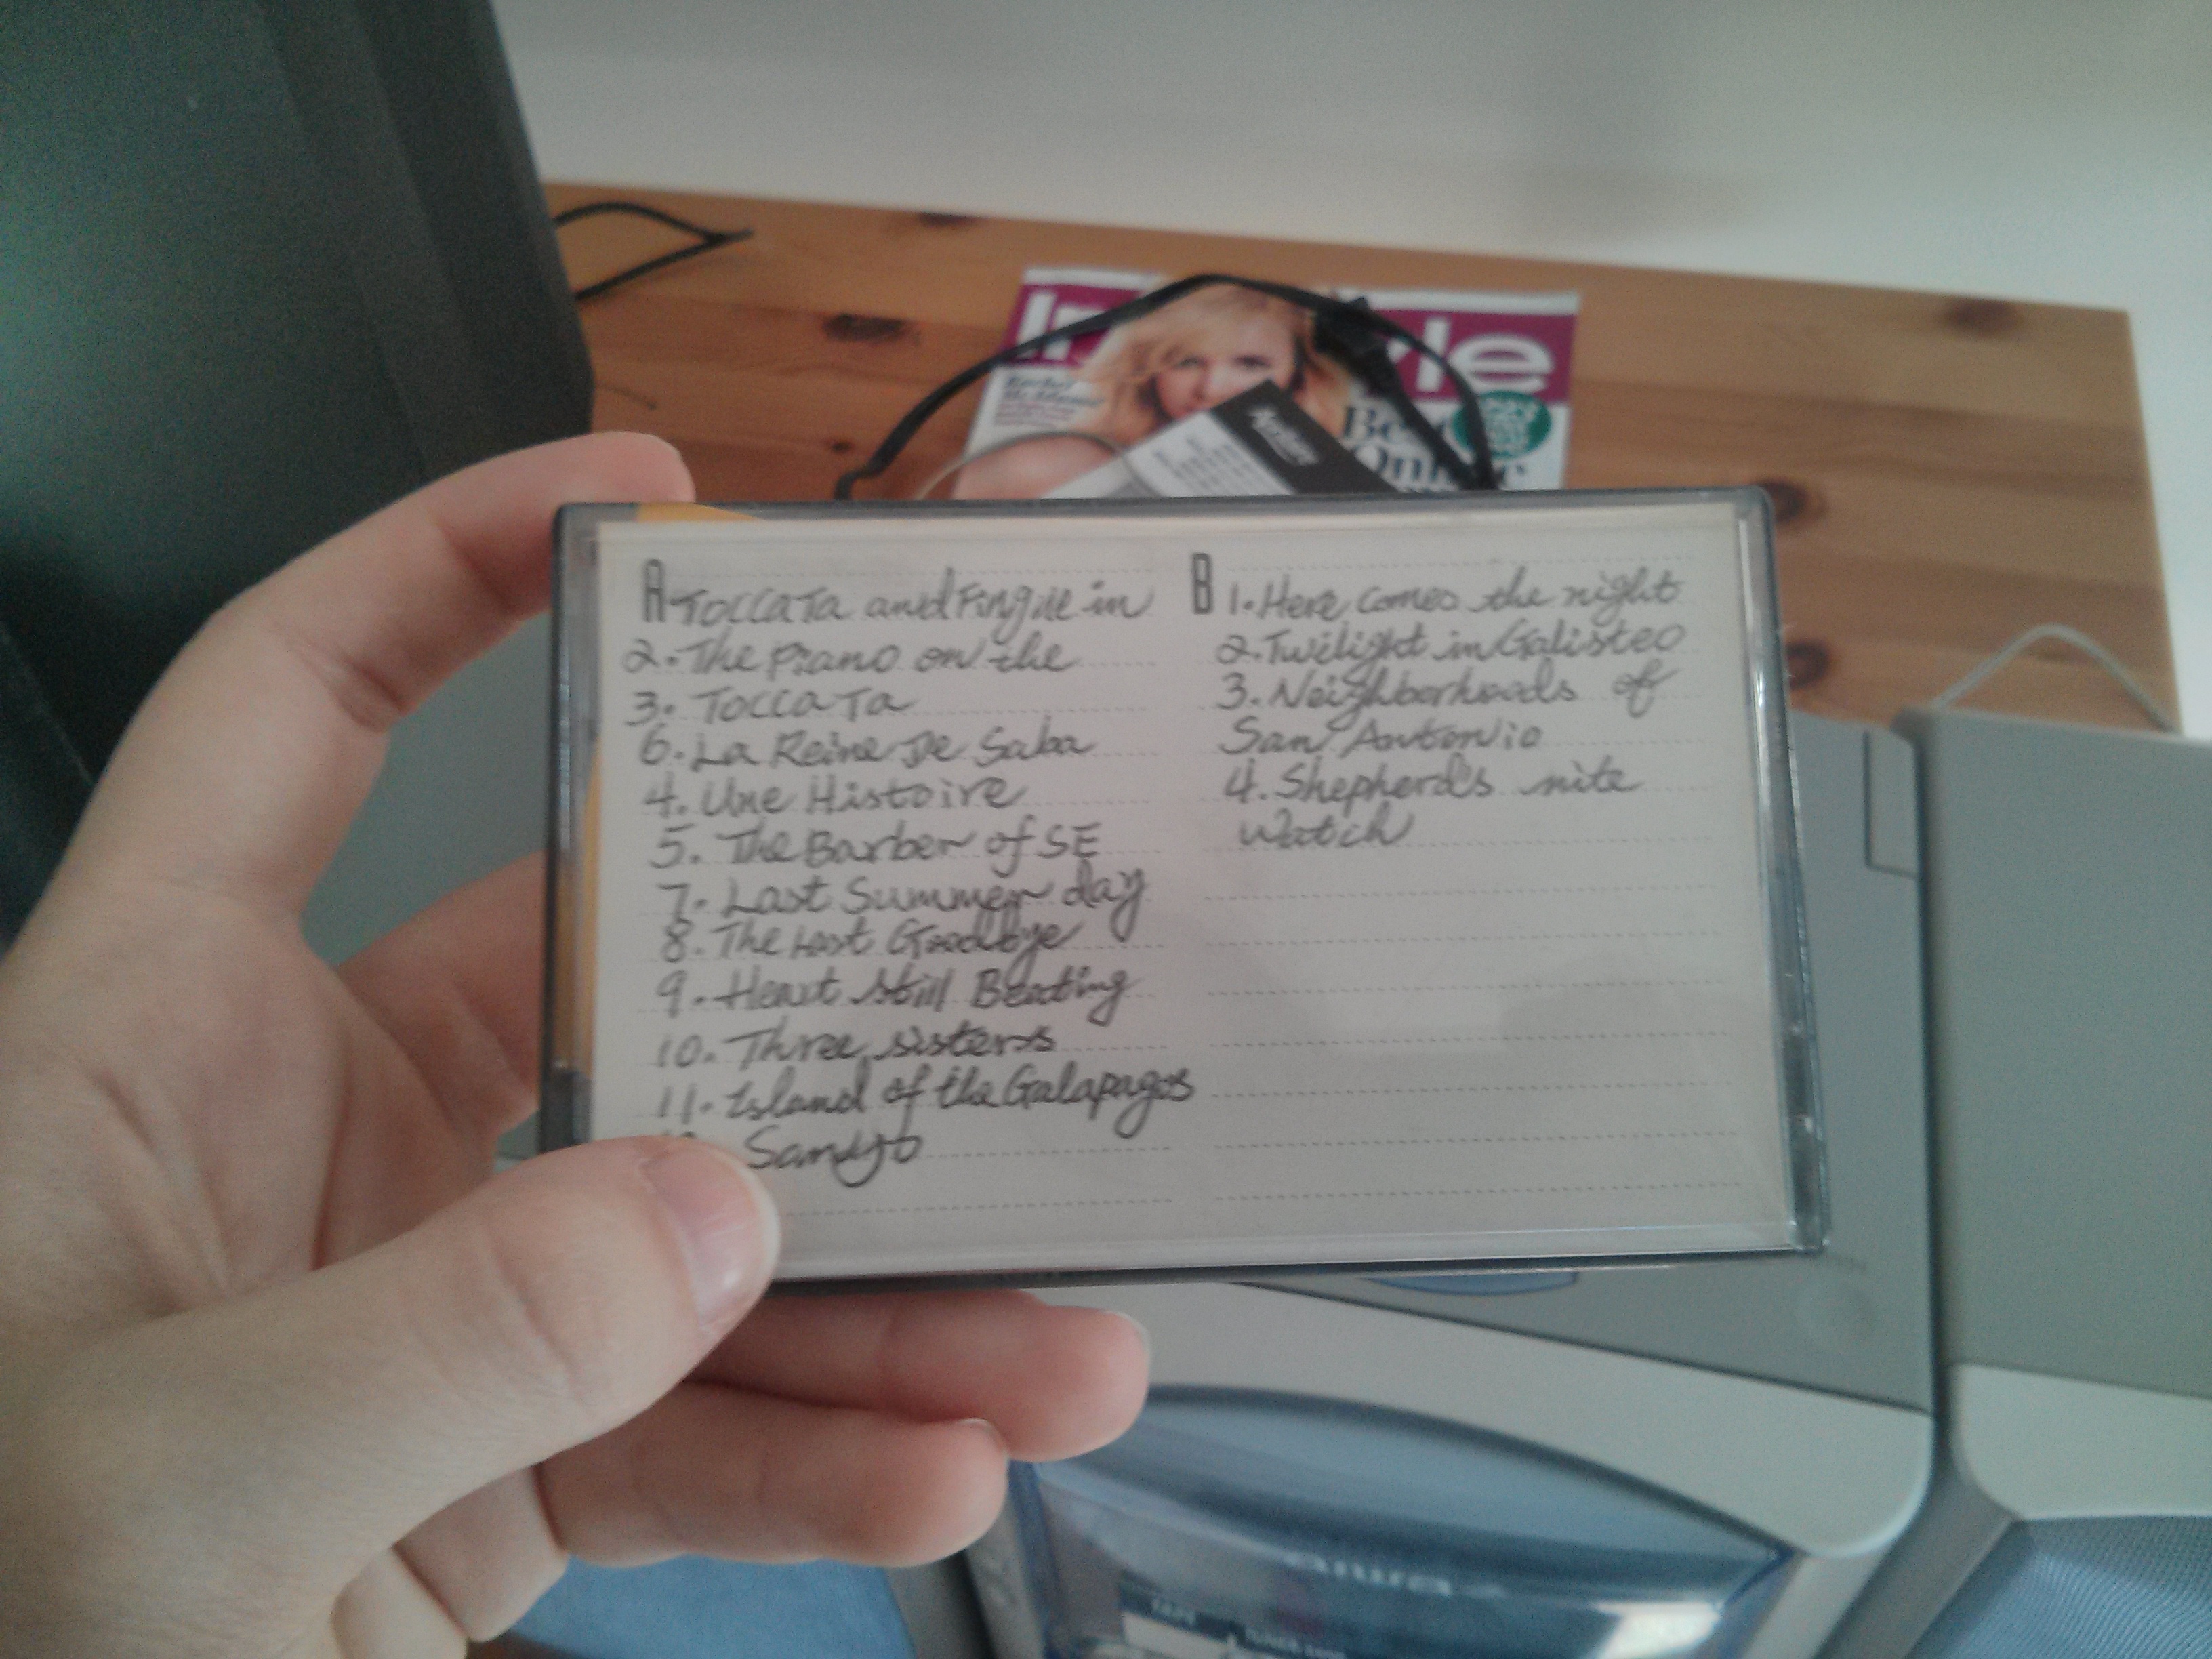 InStyle
Best
A
Toccata and Fingue in
2. The Piano on the
3. Toccata
6. La Reine De Saba
4. Une Histoire
5. The Barber of SE
7. Last Summer day
8. The Last Goodbye
9. Heart still Beating
10. Three sisters
11. Island of the Galapagos
B
1. Here comes the night
2. Twilight in Galisteo
3. Neighborhoods of
San Antonio
4. Shepherd's nite
Watch
aiwa
TAPE